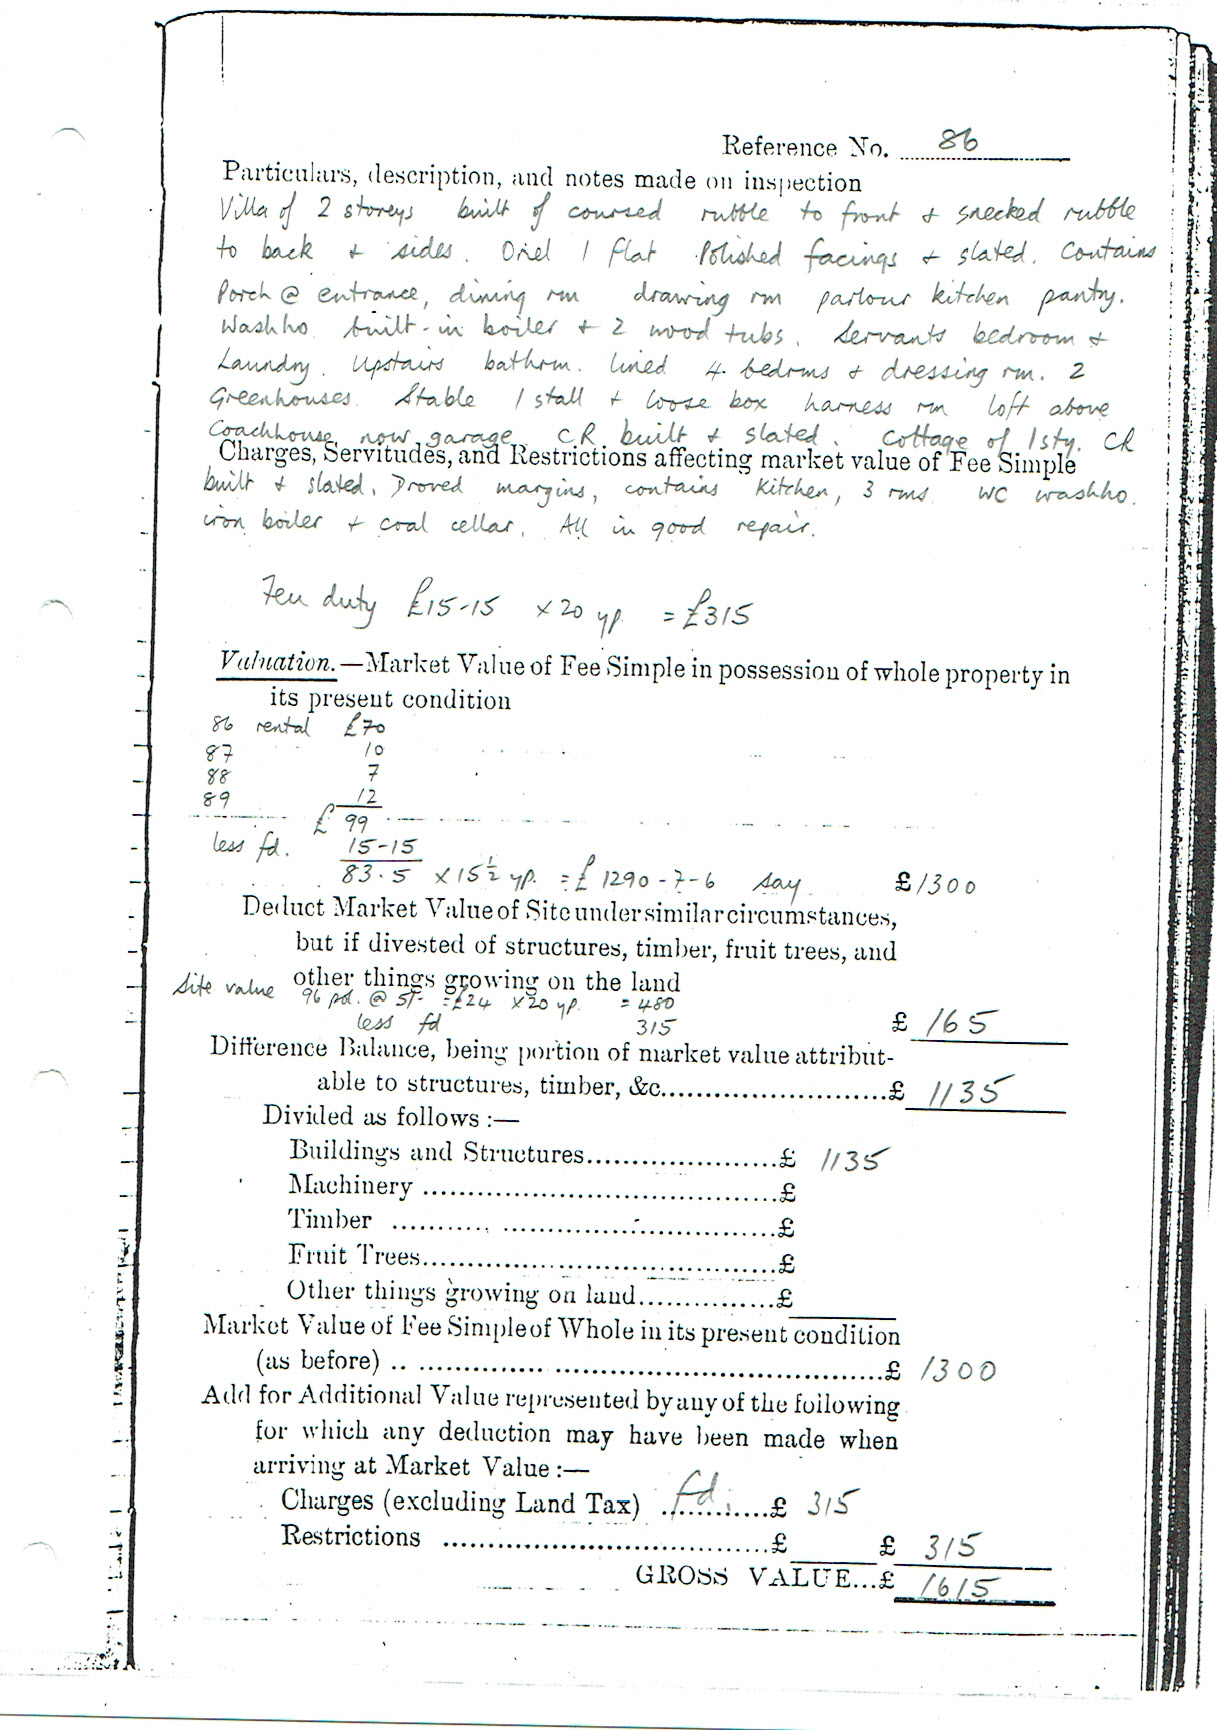 Reference No. 86
Particulars, description, and notes made on inspection
Villa of 2 storeys built of coursed rubble to front & snecked rubble
to back & sides. Oriel 1 flat Polished facings & slated. Contains
Porch @ entrance, dining rm drawing rm parlour kitchen pantry.
Washho. built-in boiler & 2 wood tubs. Servants bedroom &
Laundry. Upstairs bathrm. lined 4 bedrms & dressing rm. 2
Greenhouses. Stable 1 stall & loose box harness rm loft above
Coachhouse, now garage. CR built & slated. Cottage of 1 sty. CR
Charges, Servitudes, and Restrictions affecting market value of Fee Simple
built & slated. Droved margins, contains Kitchen, 3 rms. WC washho.
iron boiler & coal cellar. All in good repair.
Feu duty £15-15 x 20 yp. = £315
Valuation.—Market Value of Fee Simple in possession of whole property in
its present condition
86 rental £70
87 10
88 7
89 12
£ 99
less fd. 15-15
83.5 x 15½ yp. = £1290-7-6 say £1300
Deduct Market Value of Site under similar circumstances,
but if divested of structures, timber, fruit trees, and
other things growing on the land
Site value 96 pol. @ 5/- = £24 x 20 yp. = 480
less fd 315 £ 165
Difference Balance, being portion of market value attribut-
able to structures, timber, &c.........................£ 1135
Divided as follows :—
Buildings and Structures.....................£ 1135
Machinery ......................................£
Timber ..........................................£
Fruit Trees......................................£
Other things growing on land...............£
Market Value of Fee Simple of Whole in its present condition
(as before) .. ..................................................£ 1300
Add for Additional Value represented by any of the following
for which any deduction may have been made when
arriving at Market Value :—
Charges (excluding Land Tax) ...fd.......£ 315
Restrictions ...................................£ £ 315
GROSS VALUE...£ 1615